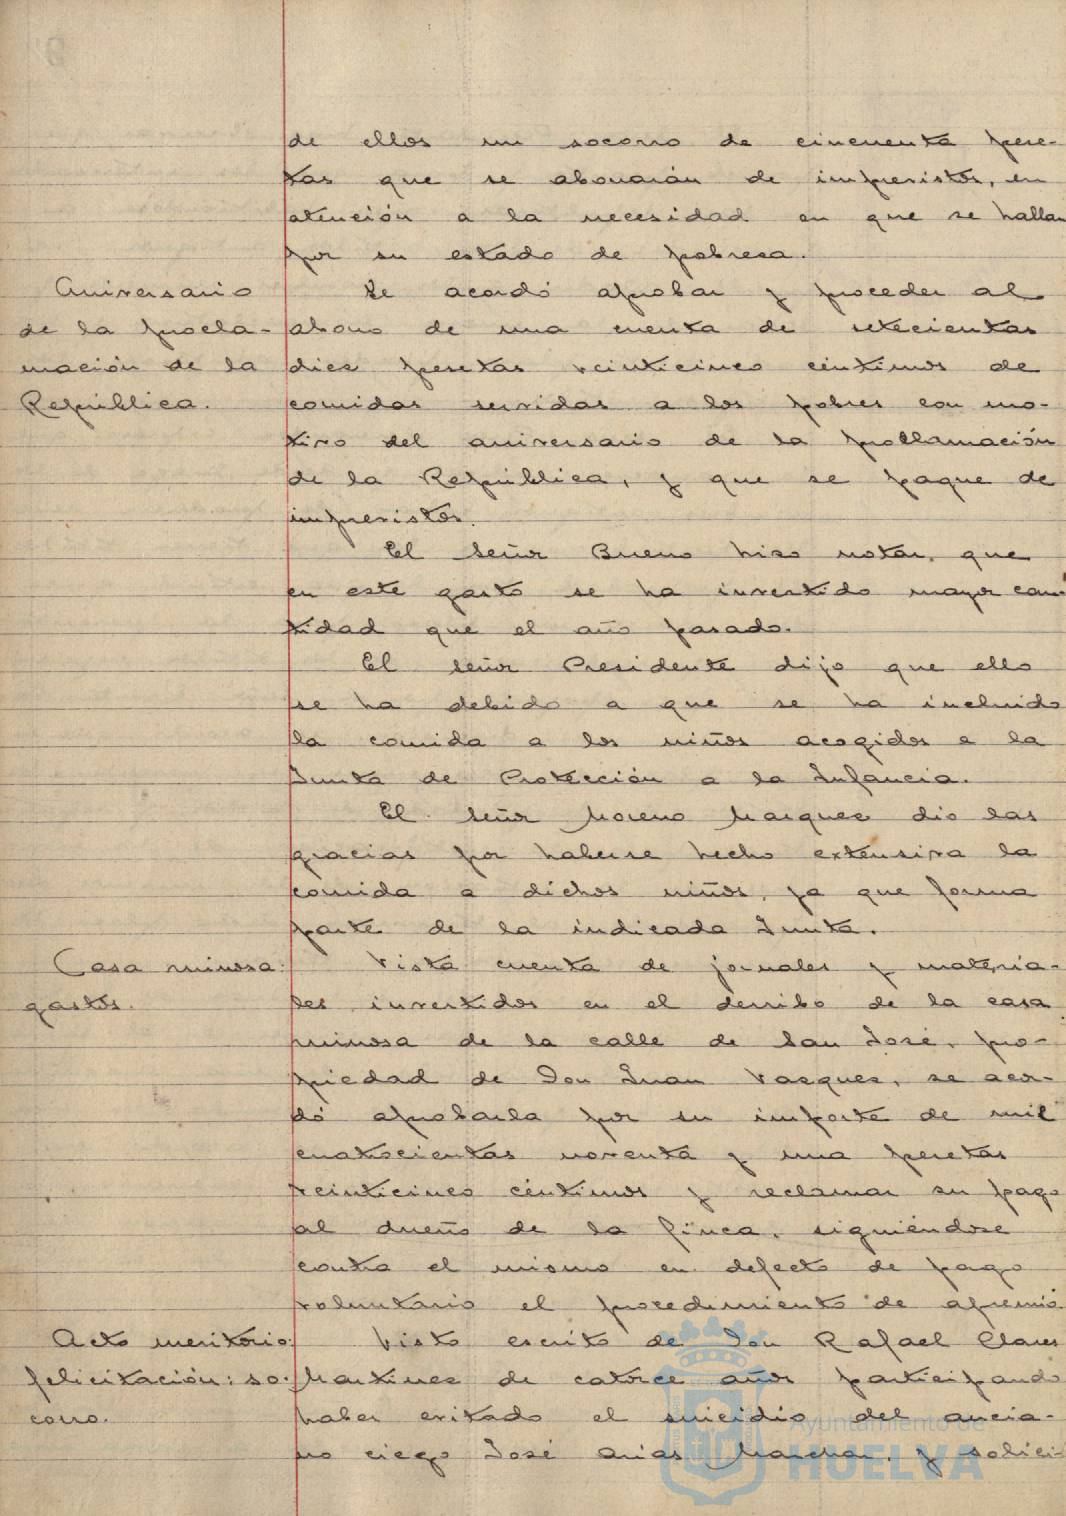 de ellos un socorro de cincuenta pese-
tas que se abonarán de imprevistos, en
atención a la necesidad en que se hallan
por su estado de pobresa.
Aniversario
de la procla-
mación de la
República.
Se acordó aprobar y proceder al
abono de una cuenta de setecientas
diez pesetas veinticinco céntimos de
comidas servidas a los pobres con mo-
tivo del aniversario de la proclamación
de la República, y que se pague de
imprevistos.
El señor Bueno hizo notar, que
en este gasto se ha invertido mayor can-
tidad que el año pasado.
El señor Presidente dijo que ello
se ha debido a que se ha incluido
la comida a los niños acogidos a la
Junta de Protección a la Infancia.
El señor Moreno Marquez dio las
gracias por haberse hecho extensiva la
comida a dichos niños, ya que forma
parte de la indicada Junta.
Casa ruinosa:
gastos.
Vista cuenta de jornales y materia-
les invertidos en el derribo de la casa
ruinosa de la calle de San José, pro-
piedad de Don Juan Vasquez, se acor-
dó aprobarla por su importe de mil
cuatrocientas noventa y una pesetas
veinticinco céntimos y reclamar su pago
al dueño de la finca, siguiéndose
contra el mismo en defecto de pago
voluntario el procedimiento de apremio
Acto meritorio:
felicitación: so-
corro.
Visto escrito de Don Rafael Claros
Martinez de catorce años participando
haber evitado el suicidio del ancia-
no ciego José Arias y solici-
Ayuntamiento de
HUELVA